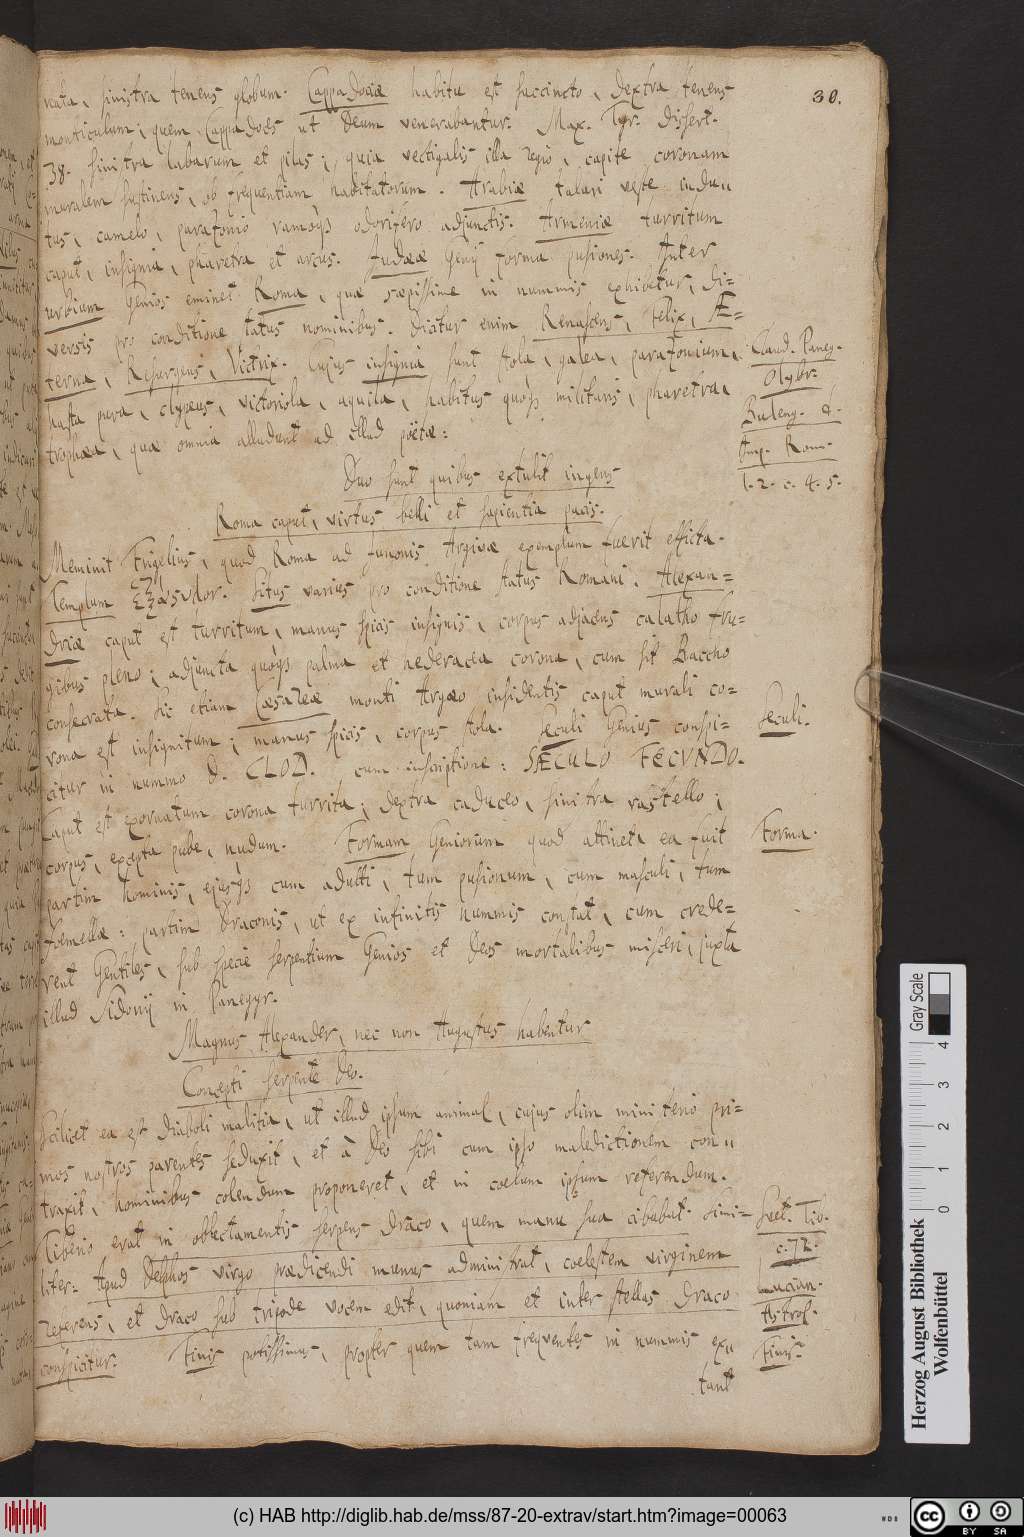 30.
nata, sinistra tenens globum. Cappadociæ habitu est succincto, dextra tenens
monticulum, quem Cappadoces ut Deum venerabantur. Max. Tyr. dissert.
38. sinistra labarum et pilas; quia vectigalis illa regio, capite coronam
muralem sustinens, ob frequentiam habitatorum. Arabiæ talari veste indu„
tus, camelo, parazonio ramoqs odorifero adjunctis. Armeniæ turritum
caput, insignia, pharetra et arcus. Judææ Genij forma pusiones. Inter
urbium Genios eminet Roma, quæ sæpissime in nummis exhibetur, di=
versis pro conditione status nominibus. Dicitur enim Renascens, Felix, Æ=
terna, Resurgens, Victrix. Cujus insignia sunt stola, galea, parazonium,
hasta pura, clypeus, victoriola, aquila, habitus quoqs militaris, pharetra,
trophæa, quæ omnia alludunt ad illud poëtæ:
Claud. Paneg.
Olybr.
Buleng. d.
Imp. Rom.
l. 2. c. 4. 5.
Duo sunt quibus extulit ingens
Roma caput, virtus belli et sapientia pacis.
Meminit Frigelius, quod Roma ad Junonis Argivæ exemplum fuerit efficta.
Templum Situs varius pro conditione status Romani. Alexan=
driæ caput est turritum, manus spicis insignis, corpus adjacens calatho fru=
gibus pleno; adjuncta quoqs palma et hederacea corona, cum sit Baccho
consecrata. Sic etiam Cæsareæ monti Argæo insidentis caput murali co=
rona est insignitum; manus spicis, corpus stola. Seculi Genius conspi=
citur in nummo D. CLOD. cum inscriptione: SÆCULO FECUNDO.
Seculi.
Caput est exornatum corona turrita; dextra caduceo, sinistra rastello;
corpus, excepta pube, nudum. Formam Geniorum quod attinet, ea fuit
Forma.
partim hominis, ejusqs cum adulti, tum pusionum, cum masculi, tum
foemellæ: partim draconis, ut ex infinitis nummis constat, cum crede=
rent Gentiles, sub specie serpentium Genios et Deos mortalibus misceri, juxta
illud Sidonij in Panegyr.
Magnus Alexander, nec non Augustus habentur
Concepti serpente Deo.
Scilicet ea est diaboli malitia, ut illud ipsum animal, cujus olim ministerio pri=
mos nostros parentes seduxit, et à Deo sibi cum ipso maledictionem con„
traxit, hominibus colendum proponeret, et in coelum ipsum referendum.
Tiberio erat in oblectamentis serpens draco, quem manu sua cibabat. Simi=
Suet. Tib.
c. 72.
liter: Apud Delphos virgo prædicendi munus administrat, coelestem virginem
Lucian.
Astrol.
referens, et draco sub tripode vocem edit, quoniam et inter stellas draco
conspicitur. Finis potissimus, propter quem tam frequentes in nummis ex„
Finis
tant
Gray Scale
0 1 2 3 4
Herzog August Bibliothek
Wolfenbüttel
(c) HAB http://diglib.hab.de/mss/87-20-extrav/start.htm?image=00063
cc BY SA